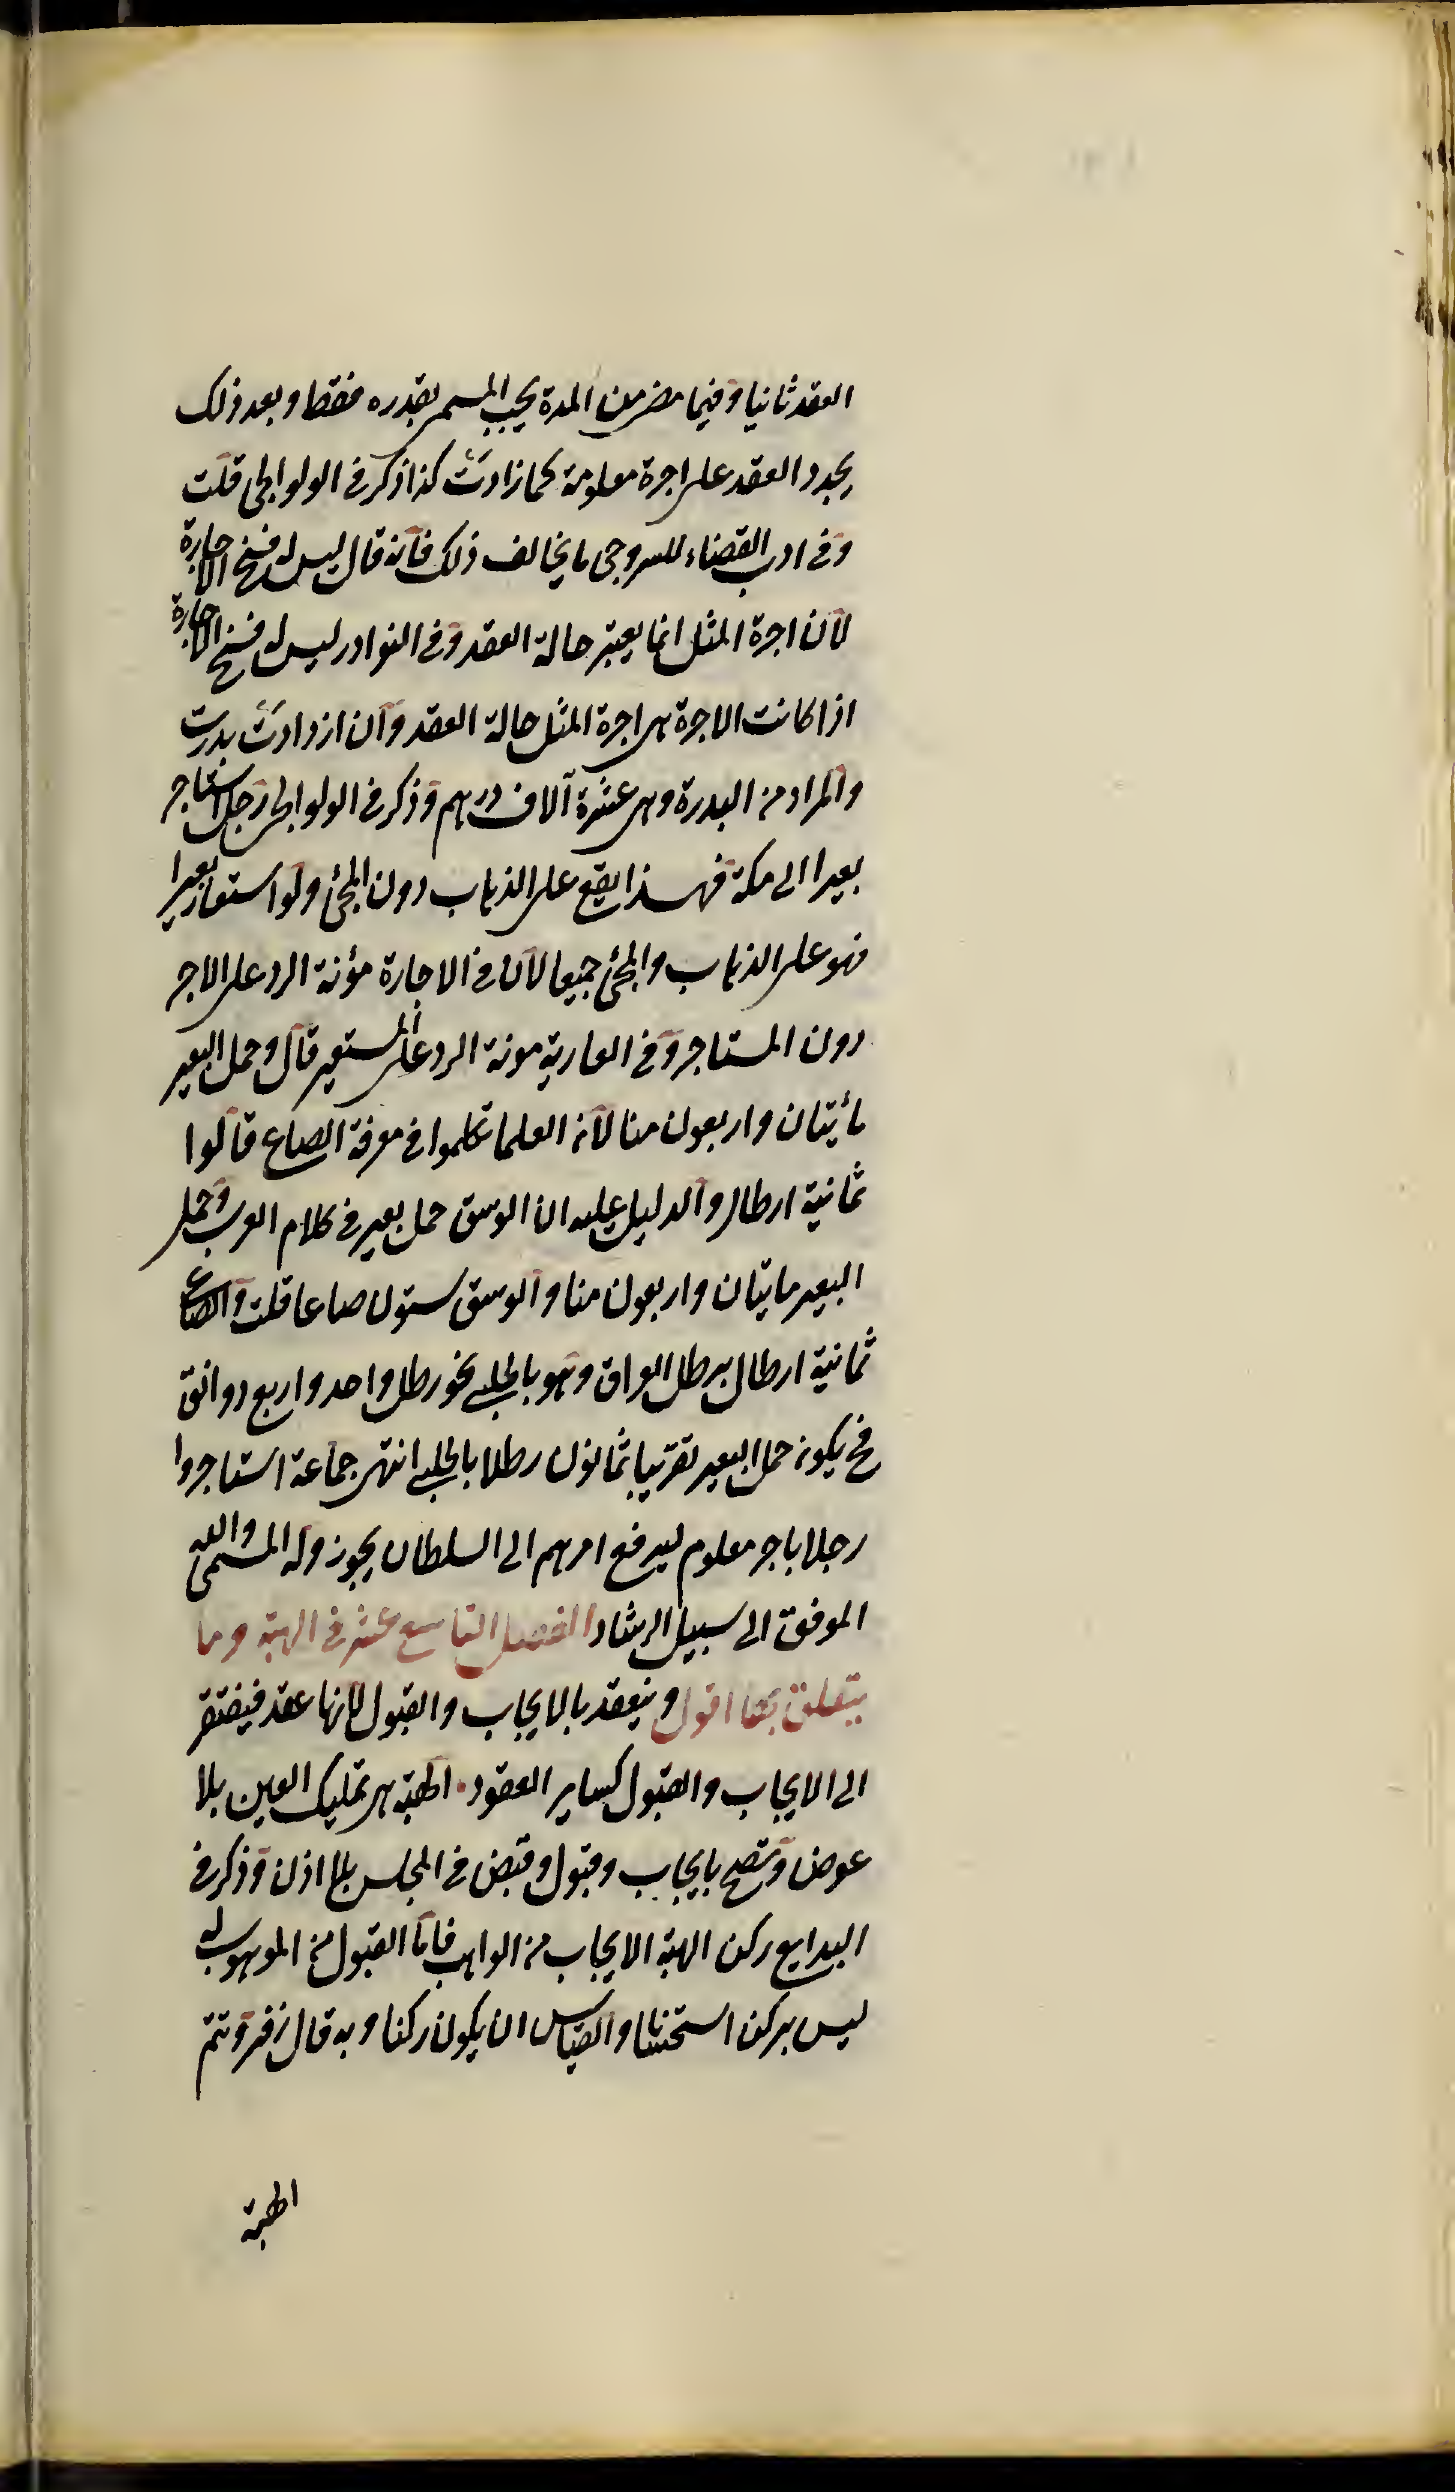 العقد ثانيا وفيما مضى من المدة يجب المسمى بقدره فقط وبعد ذلك
يجدد العقد على اجرة معلومة كما زادت كذا ذكر في الولوالجى قلت
وفى ادب القضاء للسروجى ما يخالف ذلك فانه قال ليس له فسخ الاجارة
لان اجرة المثل انما يعتبر حالة العقد وفى النوادر ليس له فسخ الاجارة
اذا كانت الاجرة هى اجرة المثل حالة العقد وان ازدادت بدرت
والمراد من البدرة وهى عشرة آلاف درهم وذكر فى الولوالجى رجل استاجر
بعيرا الى مكة فهذا يقع على الذهاب دون المجئ ولو استعار بعيرا
فهو على الذهاب والمجئ جميعا لان فى الاجارة مؤنة الرد على الاجر
دون المستاجر وفى العارية مونة الرد على المستعير قال وحمل البعير
مائتان واربعون منا لان العلما تكلموا فى معرفة الصاع قالوا
ثمانية ارطال والدليل عليه ان الوسق حمل بعير فى كلام العرب وحمل
البعير مايتان واربعون منا والوسق ستون صاعا قلت والصاع
ثمانية ارطال برطل العراق وهو بالحلبى نحو رطل واحد واربع دوانق
فح يكون حمل البعير تقريبا ثمانون رطلا بالحلبى انتهى جماعة استاجروا
رجلا باجر معلوم ليرفع امرهم الى السلطان يجوز وله المسمى والله
الموفق الى سبيل الرشاد الفصل التاسع عشر فى الهبة وما
يتعلق بها اقول وينعقد بالايجاب والقبول لانها عقد فيفتقر
الى الايجاب والقبول كساير العقود . الهبة هى تمليك العين بلا
عوض وتصح بايجاب وقبول وقبض فى المجلس بلا اذن وذكر فى
البدايع ركن الهبة الايجاب من الواهب فاما القبول من الموهوب له
ليس بركن استحسانا والقياس ان يكون ركنا وبه قال زفر وتتم
الهبة